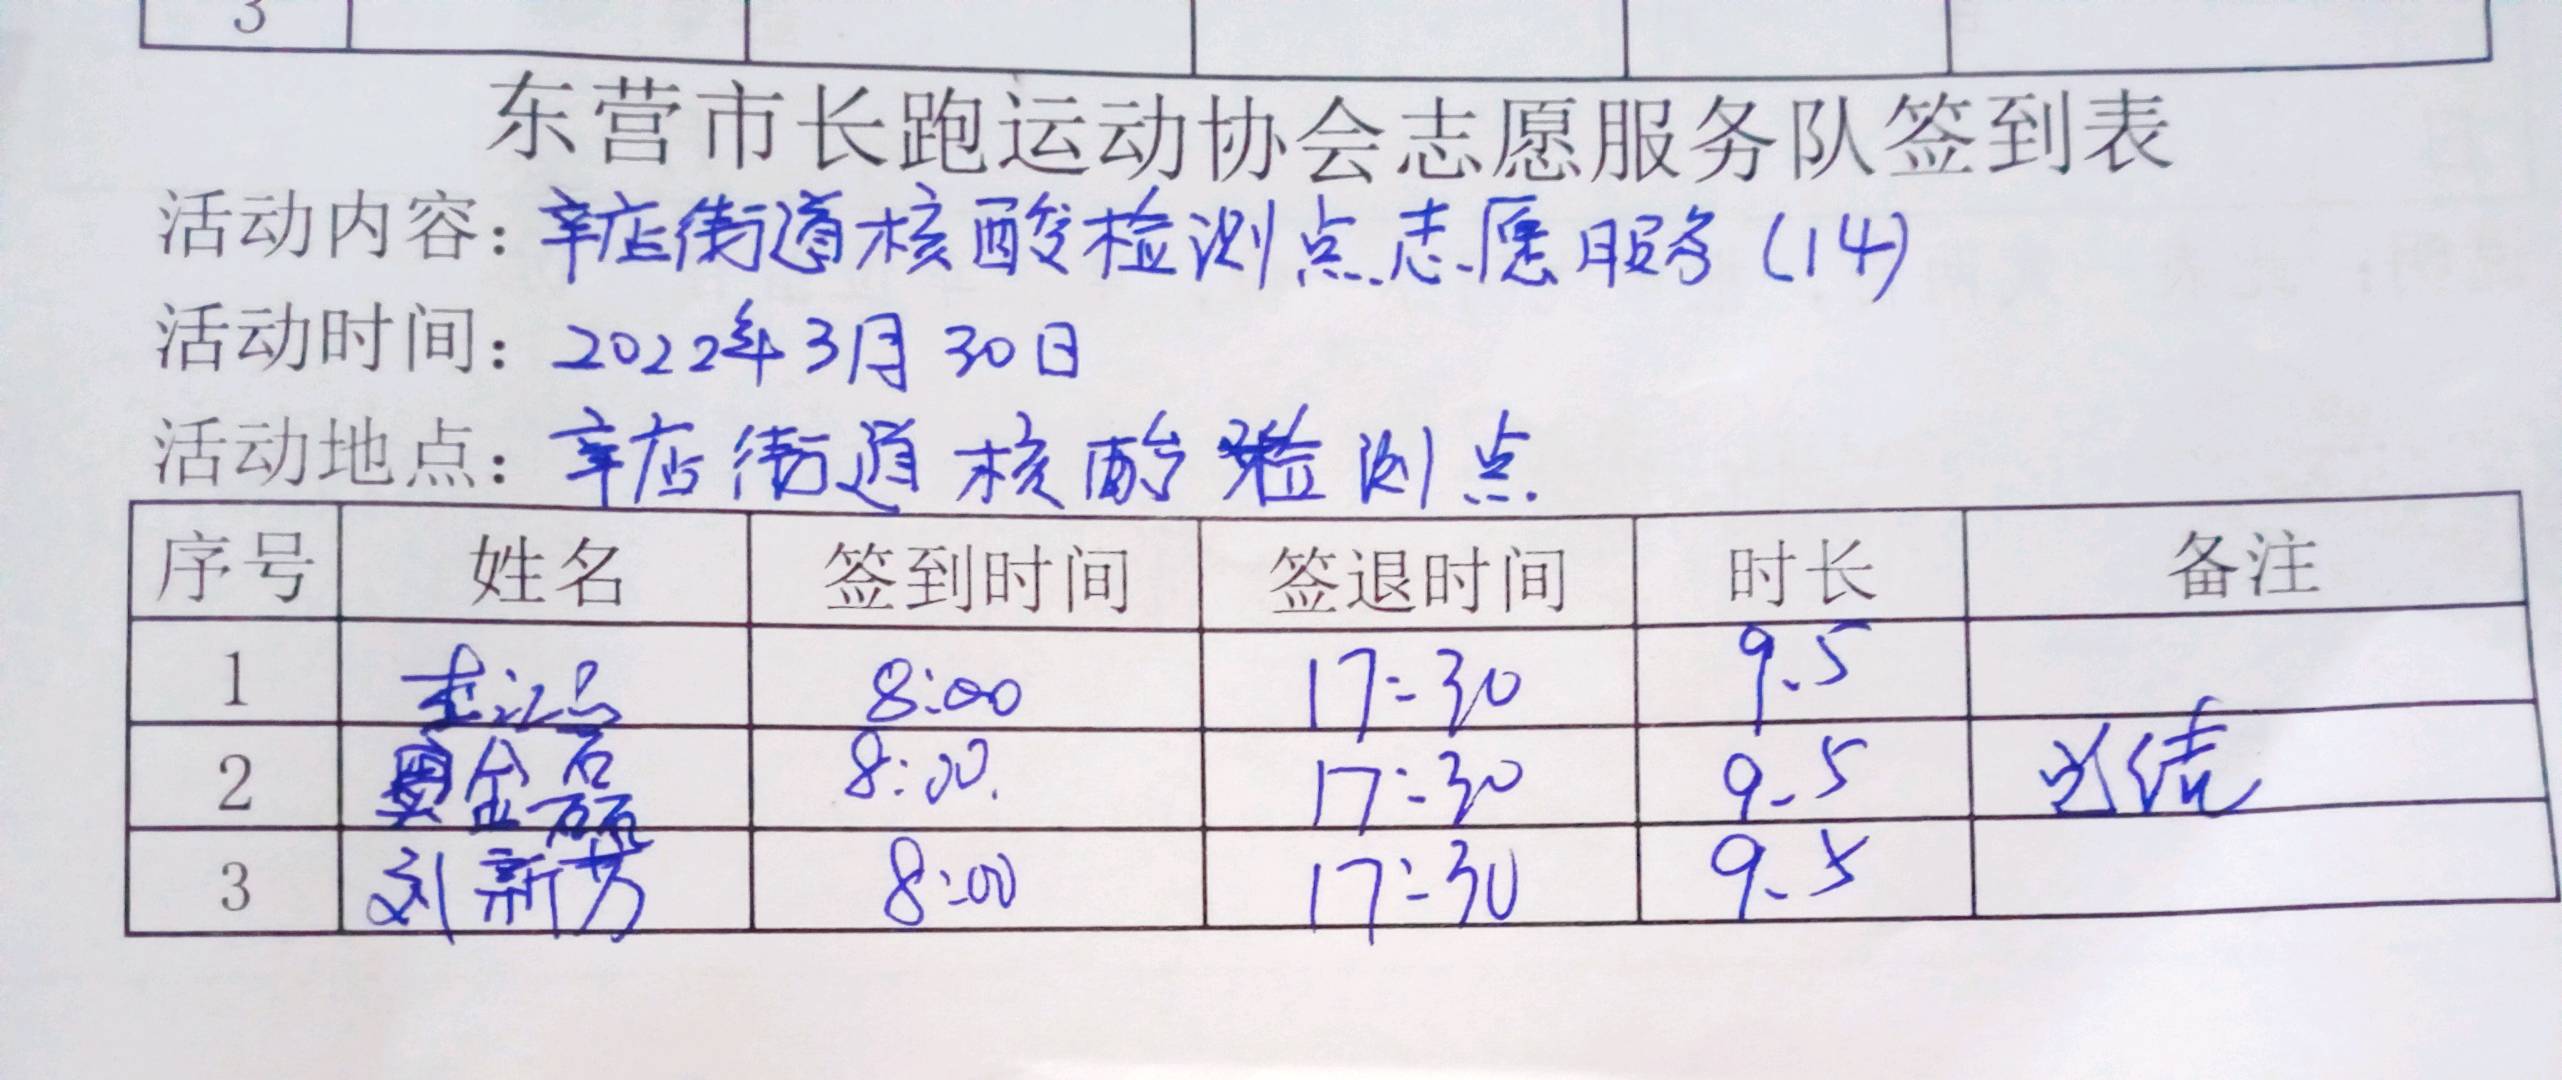 3
东营市长跑运动协会志愿服务队签到表
活动内容：辛店街道核酸检测点志愿服务（14）
活动时间：2022年3月30日
活动地点：辛店街道核酸检测点
序号 姓名 签到时间 签退时间 时长 备注
1 8:00 17:30 9.5
2 金磊 8:00 17:30 9.5 总结
3 刘新芳 8:00 17:30 9.5